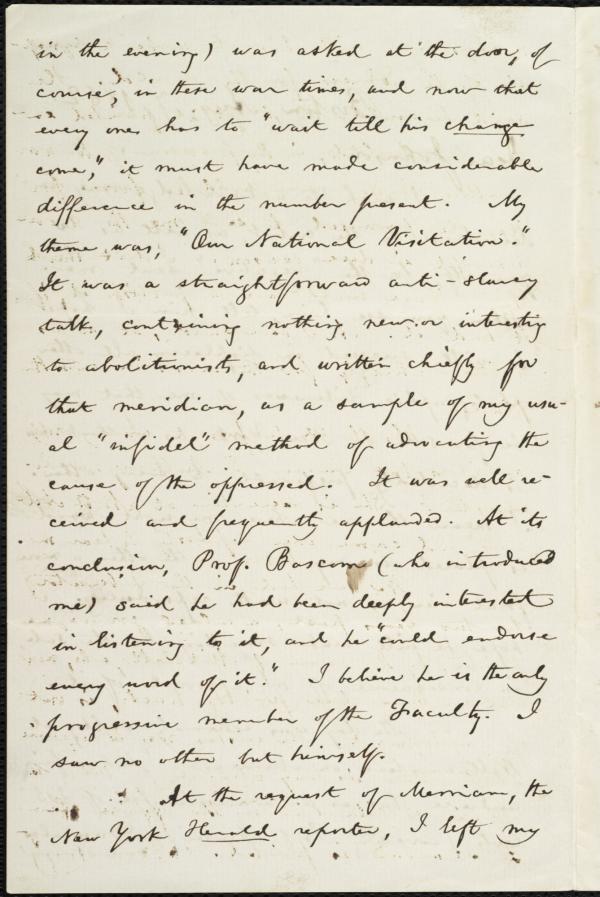 in the evening) was asked at the door, of
course, in these war times, and now that
every one has to "wait till his change
come," it must have made considerable
difference in the number present. My
theme was, "Our National Visitation."
It was a straightforward anti-slavery
talk, containing nothing new or interesting
to abolitionists, and written chiefly for
that meridian, as a sample of my usu-
al "infidel" method of advocating the
cause of the oppressed. It was well re-
ceived and frequently applauded. At its
conclusion, Prof. Bascom (who introduced
me) said he had been deeply interested
in listening to it, and he "could endorse
every word of it." I believe he is the only
progressive member of the Faculty. I
saw no other but himself.
At the request of Merriam, the
New York Herald reporter, I left my